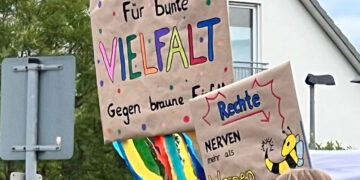 Für bunte
VIELFALT
Gegen braune
Rechte
NERVEN
mehr als